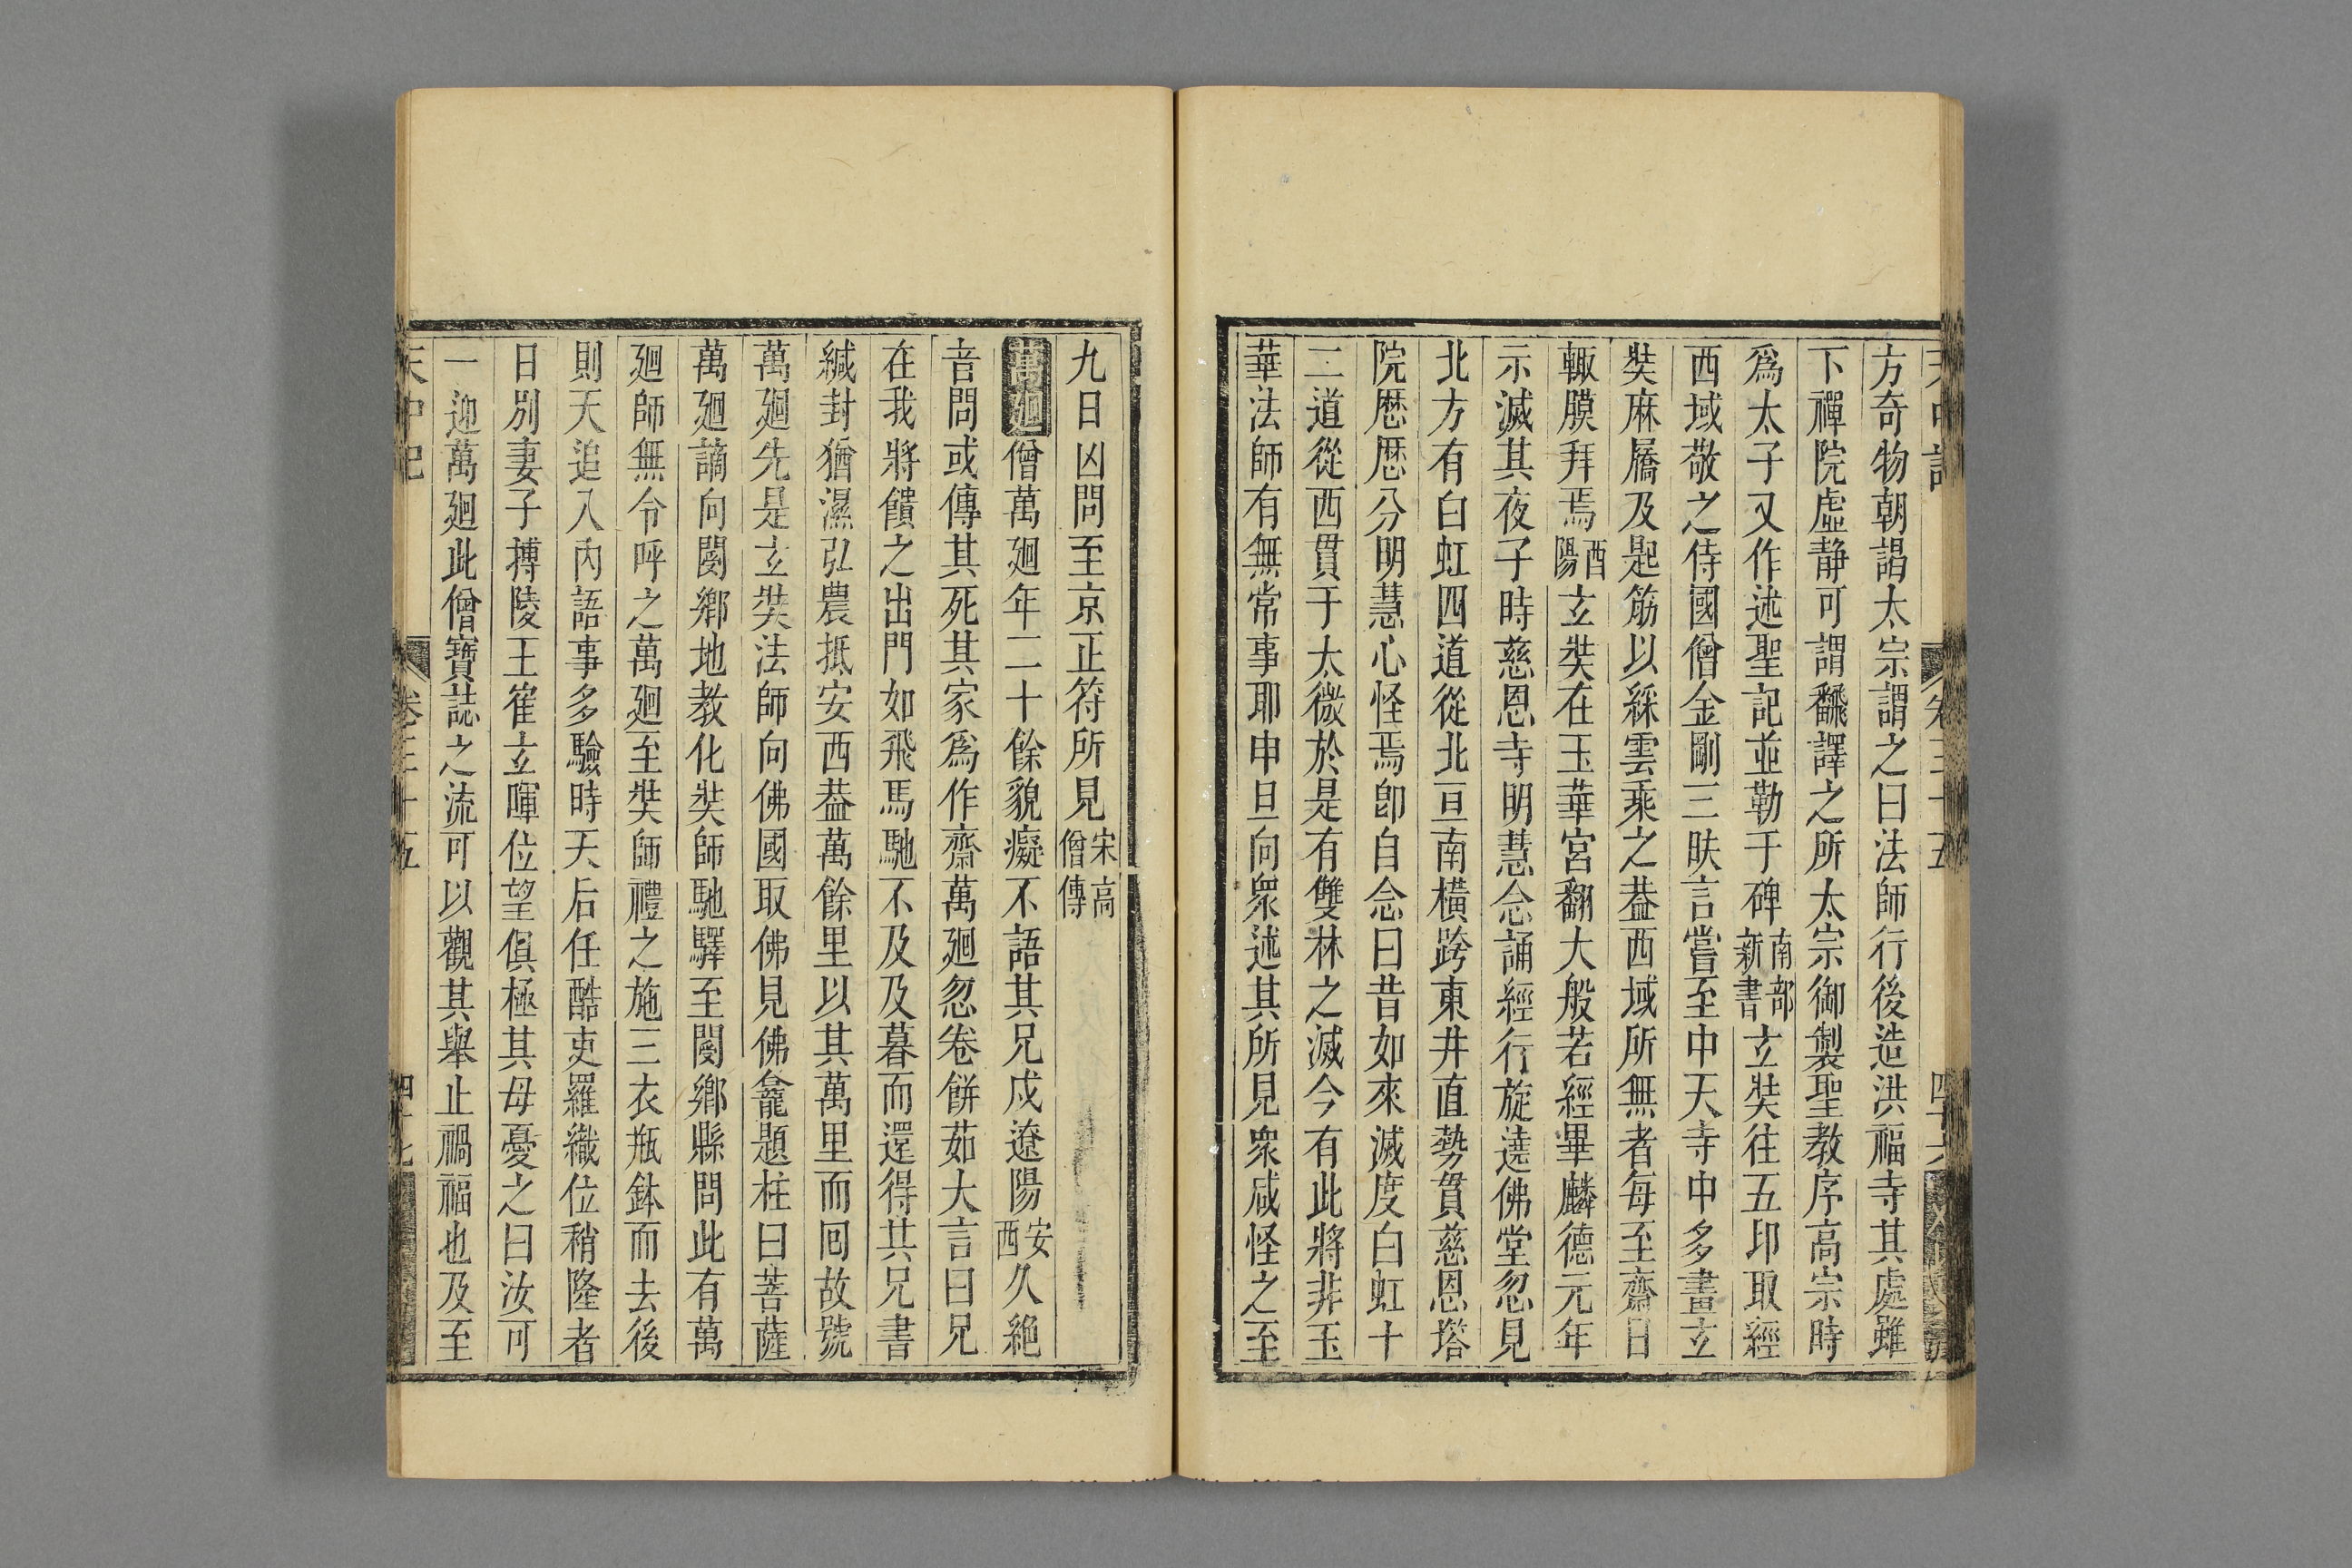 天中記
卷三十五
四十六
方奇物朝謁太宗謂之曰法師行後造洪福寺其處雖
下禪院虛静可謂飜譯之所太宗御製聖教序高宗時
爲太子又作述聖記並勒于碑南部新書玄奘往五印取經
西域敬之侍國僧金剛三昧言嘗至中天寺中多畫玄
奘麻屩及匙筯以綵雲乘之葢西域所無者每至齋日
輙膜拜焉酉陽玄奘在玉華宮翻大般若經畢麟德元年
示滅其夜子時慈恩寺明慧念誦經行旋遶佛堂忽見
北方有白虹四道從北亘南橫跨東井直勢貫慈恩塔
院歴歴分明慧心怪焉卽自念曰昔如來滅度白虹十
二道從西貫于太微於是有雙林之滅今有此將非玉
華法師有無常事耶申旦向衆述其所見衆咸怪之至
九日凶問至京正符所見宋高僧傳
萬廻僧萬廻年二十餘貌癡不語其兄戍遼陽安西久絶
音問或傳其死其家爲作齋萬廻忽卷餅茹大言曰兄
在我將饋之出門如飛馬馳不及及暮而還得其兄書
緘封猶濕弘農抵安西葢萬餘里以其萬里而囘故號
萬廻先是玄奘法師向佛國取佛見佛龕題柱曰菩薩
萬廻謫向閿鄉地教化奘師馳驛至閿鄉縣問此有萬
廻師無令呼之萬廻至奘師禮之施三衣瓶鉢而去後
則天追入內語事多驗時天后任酷吏羅織位稍隆者
日別妻子搏陵王崔玄暉位望俱極其母憂之曰汝可
一迎萬廻此僧寶誌之流可以觀其舉止禍福也及至
天中記
卷三十五
四十七